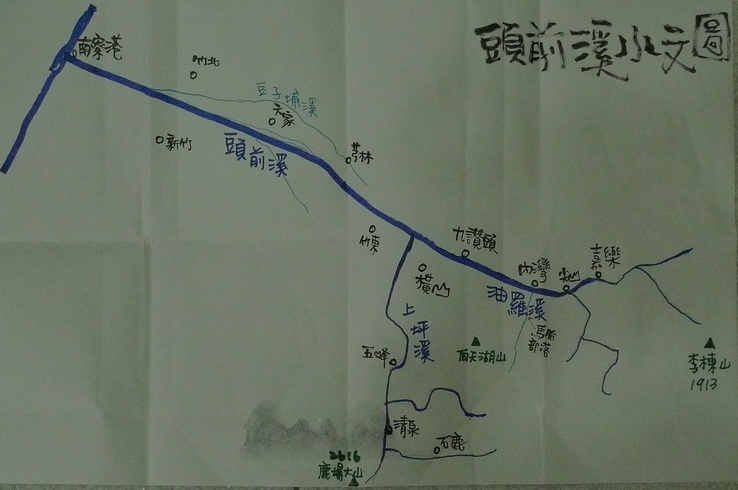 頭前溪水文圖
南寮港
竹北
豆子埔溪
六家
芎林
新竹
頭前溪
竹東
九讚頭
橫山
內灣
尖山
嘉樂
油羅溪
上坪溪
五峰
馬胎
部落
李棟山
1913
清泉
石鹿
2616
鹿場大山